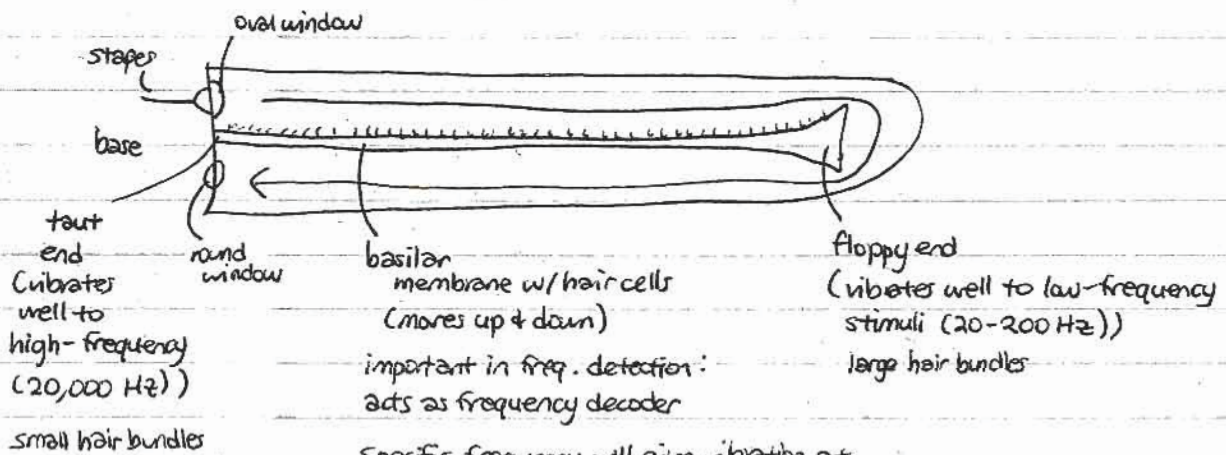 oval window
stapes
base
taut
end
(vibrates
well to
high-frequency
(20,000 Hz))
small hair bundles
round
window
basilar
membrane w/ hair cells
(moves up & down)
important in freq. detection:
acts as frequency decoder
specific frequency will give vibration at
floppy end
(vibrates well to low-frequency
stimuli (20-200 Hz))
large hair bundles